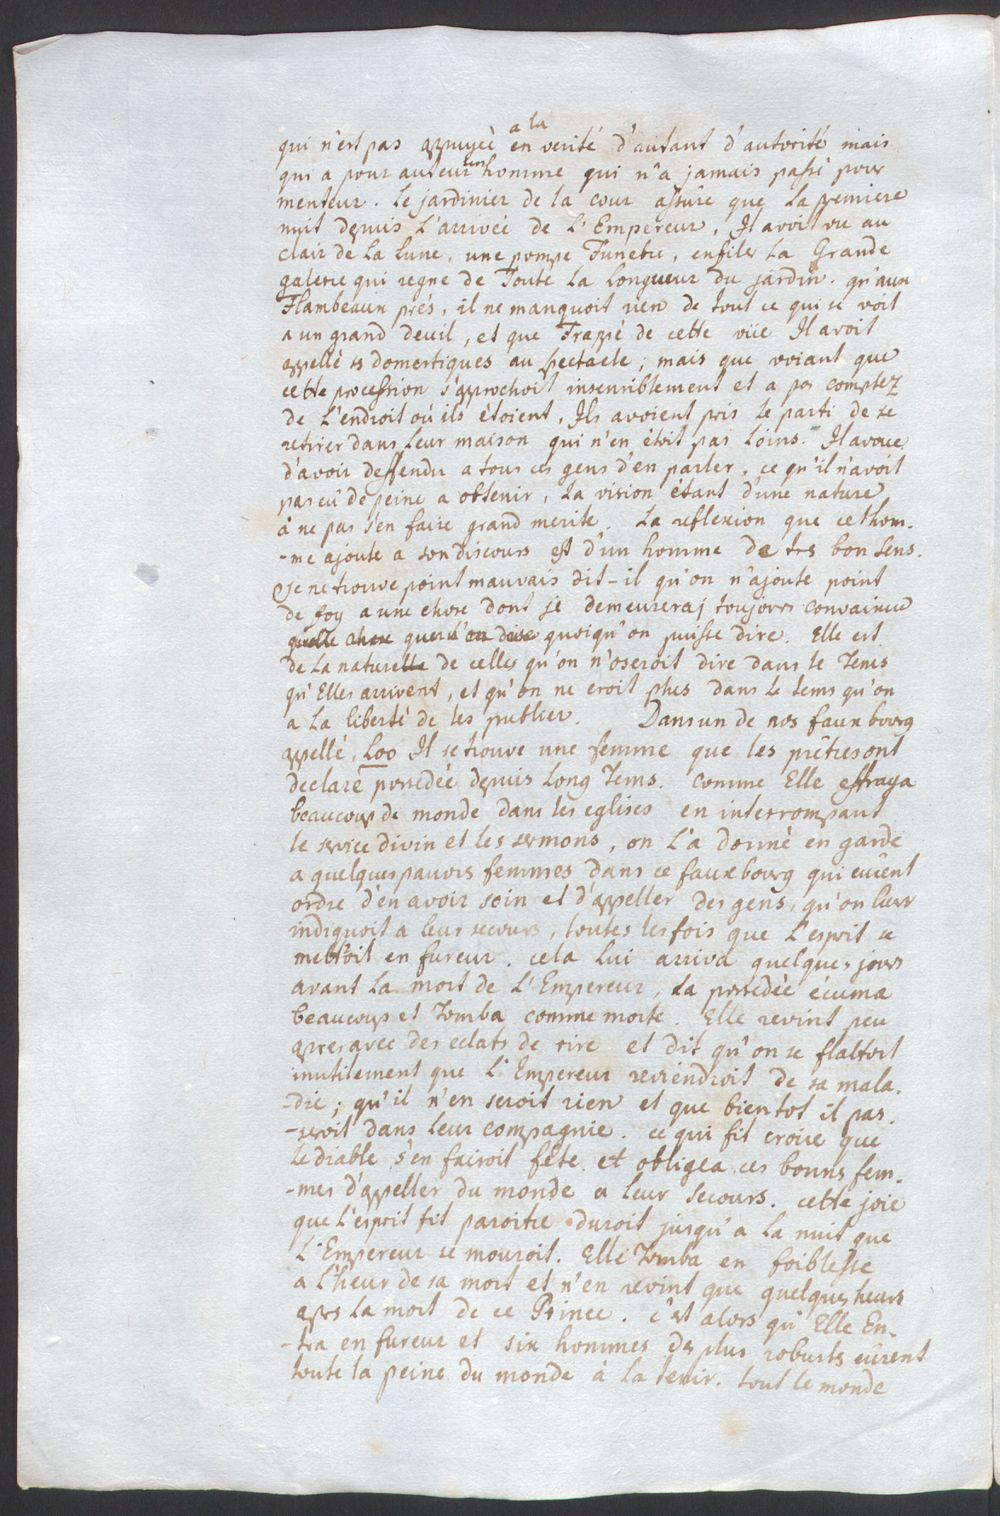 a la
qui n'est pas appuyée en verité d'autant d'autorité mais
qui a pour auteur un homme qui n'a jamais passé pour
menteur. Le jardinier de la cour assûre que la premiere
nuit depuis l'arrivée de l'Empereur, Il avoit vu au
clair de la Lune, une pompe Funebre, enfiler la Grande
galerie qui regne de Toute la Longueur du jardin. qu'aux
Flambeaux prés, il ne manquoit rien de tout ce qui se voit
a un grand deuil, et que Frappé de cette vüe Il avoit
appellé ses domestiques au spectacle; mais que voiant que
cette procession s'approchoit insensiblement et a pas comptez
de l'endroit où ils étoient, Ils avoient pris le parti de se
retirer dans leur maison qui n'en étoit pas loins. Il avoue
d'avoir deffendu a tous ces gens d'en parler, ce qu'il n'avoit
pas eû de peine a obtenir, la vision étant d'une nature
à ne pas s'en faire grand merite. La reflexion que cet hom-
-me ajoute a son discours est d'un homme de tres bon sens.
Je ne trouve point mauvais dit-il qu'on n'ajoute point
de foy a une chose dont je demeureraj toujours convaincu
quelle chose que l'on dise quoiqu'on puisse dire. Elle est
de la nature de celles qu'on n'oseroit dire dans le Tems
qu'Elles arrivent, et qu'on ne croit plus dans le tems qu'on
a la liberté de les publier. Dans un de nos faux bourg
appellé, Loo Il se trouve une femme que les prêtres ont
declaré possedée depuis long Tems. Comme Elle effraya
beaucoup de monde dans les eglises en interrompant
le service divin et les sermons, on l'a donné en garde
a quelques pauvres femmes dans ce fauxbourg qui eurent
ordre d'en avoir soin et d'appeller des gens, qu'on leur
indiquoit a leur secours, toutes les fois que l'esprit se
mettoit en fureur. cela lui arriva quelques jours
avant la mort de l'Empereur, la possedée écuma
beaucoup et Tomba comme morte. Elle revint peu
apres avec des eclats de rire et dit qu'on se flattoit
inutilement que l'Empereur reviendroit de sa mala-
-die; qu'il n'en seroit rien et que bientot il pas-
-seroit dans leur compagnie. ce qui fit croire que
le diable s'en faisoit fête et obligea ces bonnes fem-
-mes d'appeller du monde a leur secours. cette joie
que l'esprit fit paroitre duroit jusqu'a la nuit que
l'Empereur se mouroit. Elle Tomba en foiblesse
a l'heur de sa mort et n'en revint que quelques heurs
apres la mort de ce Prince. c'est alors qu'Elle En-
-tra en fureur et six hommes des plus robusts eurent
toute la peine du monde à la tenir. tout le monde